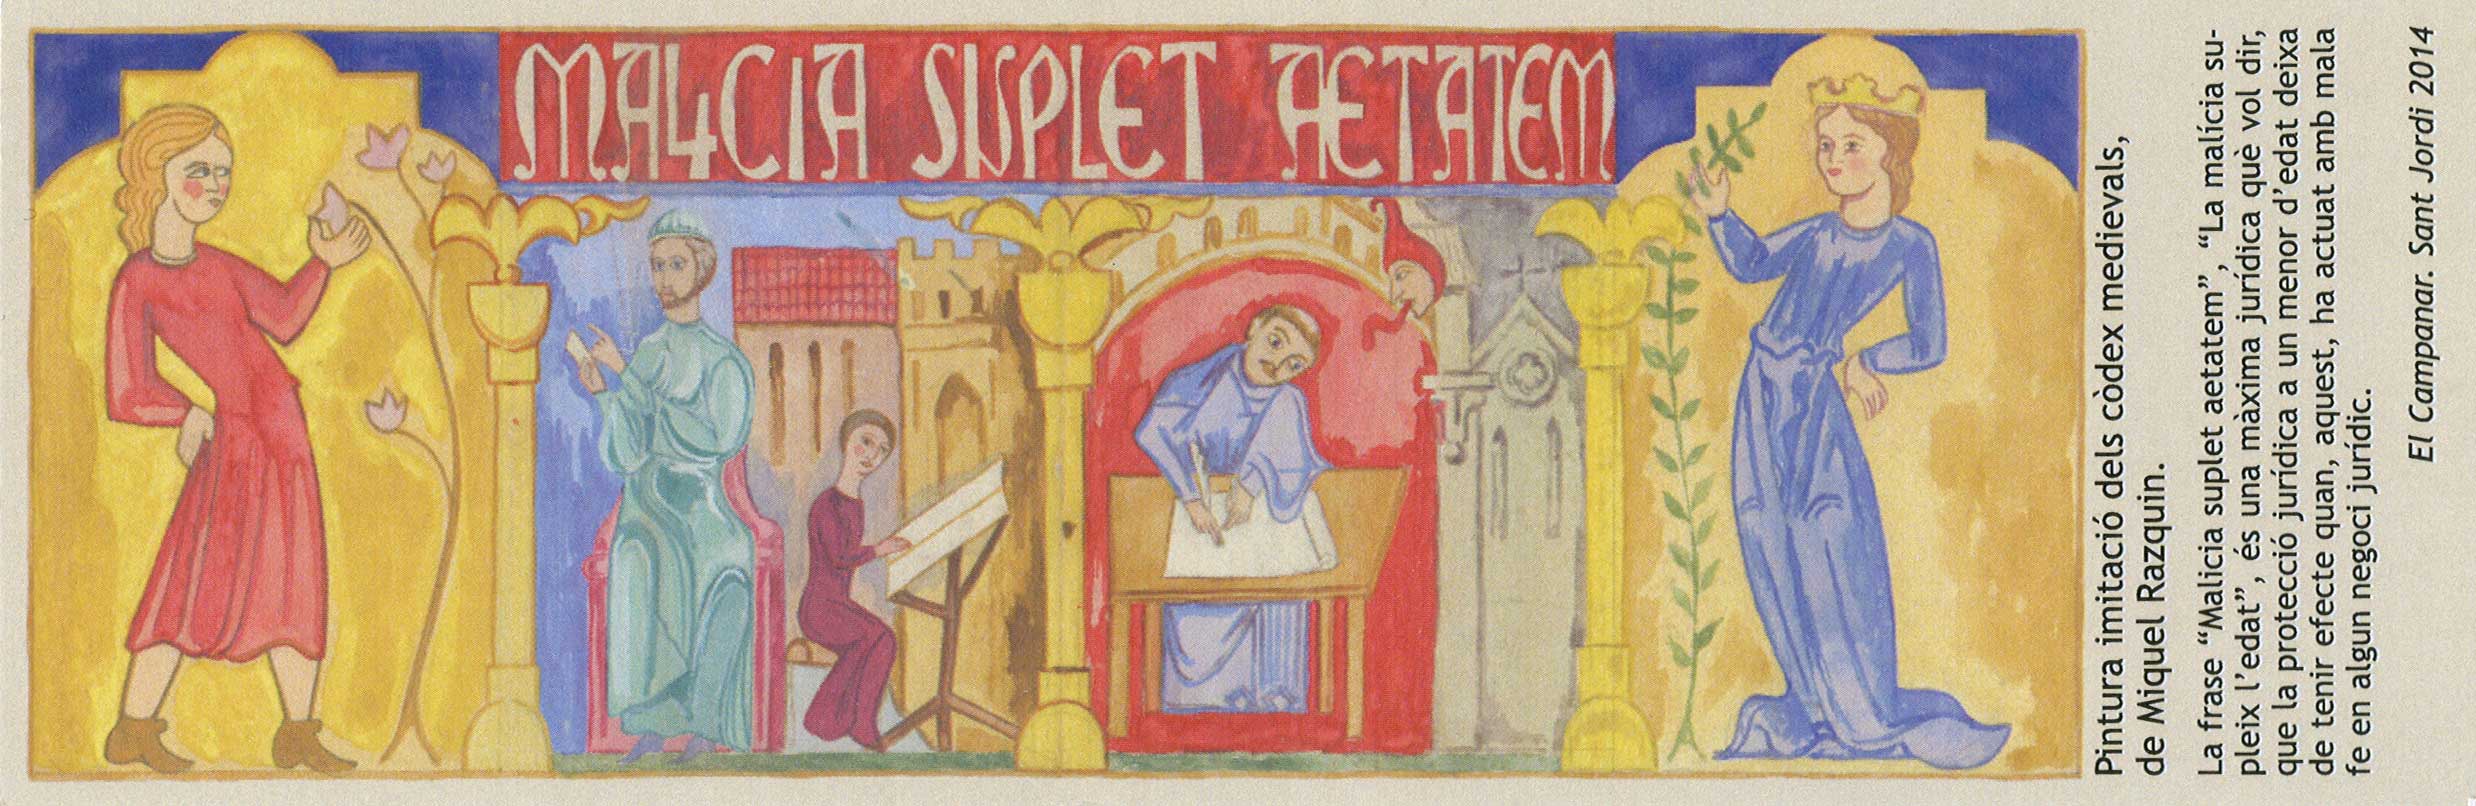 MALICIA SUPLET AETATEM
Pintura imitació dels còdex medievals,
de Miquel Razquin.
La frase “Malicia suplet aetatem”, “La malícia su-
pleix l’edat”, és una màxima jurídica què vol dir,
que la protecció jurídica a un menor d’edat deixa
de tenir efecte quan, aquest, ha actuat amb mala
fe en algun negoci jurídic.
El Campanar. Sant Jordi 2014